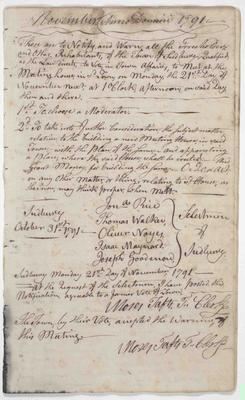 November Anno Domini 1791.
These are to Notify and Warn all the Freeholders
and other Inhabitants, of the Town of Sudbury Qualified
as the Law directs to Vote in Town Affairs, to Meet at the
Meeting house in Town on Monday the 21st Day of
November next at 1 oClock afternoon on said Day
then and there.
1st To choose a Moderator
2d To take into further Consideration the subject matter
relative to the building a new Meeting House in said
Town, with the Plan of the same, and
a Place where the said House shall be
Money for building the same Or to act
on any other Matter or thing relating to House, as
the Town may think proper when met
Sudbury
October 31st 1791
Jona Rice
Thomas Walker
Oliver Noyes
Isaac Maynard
Joseph Goodenow
Selectmen
of
Sudbury
Sudbury Monday 21st Day of November 1791
at the Request of the Selectmen, I have posted this
Notification agreable to a former Vote of Town
Moses Taft Tn Clerk
The Town by their Vote, accepted the Warning of
this Meeting
Moses Taft Tn Clerk